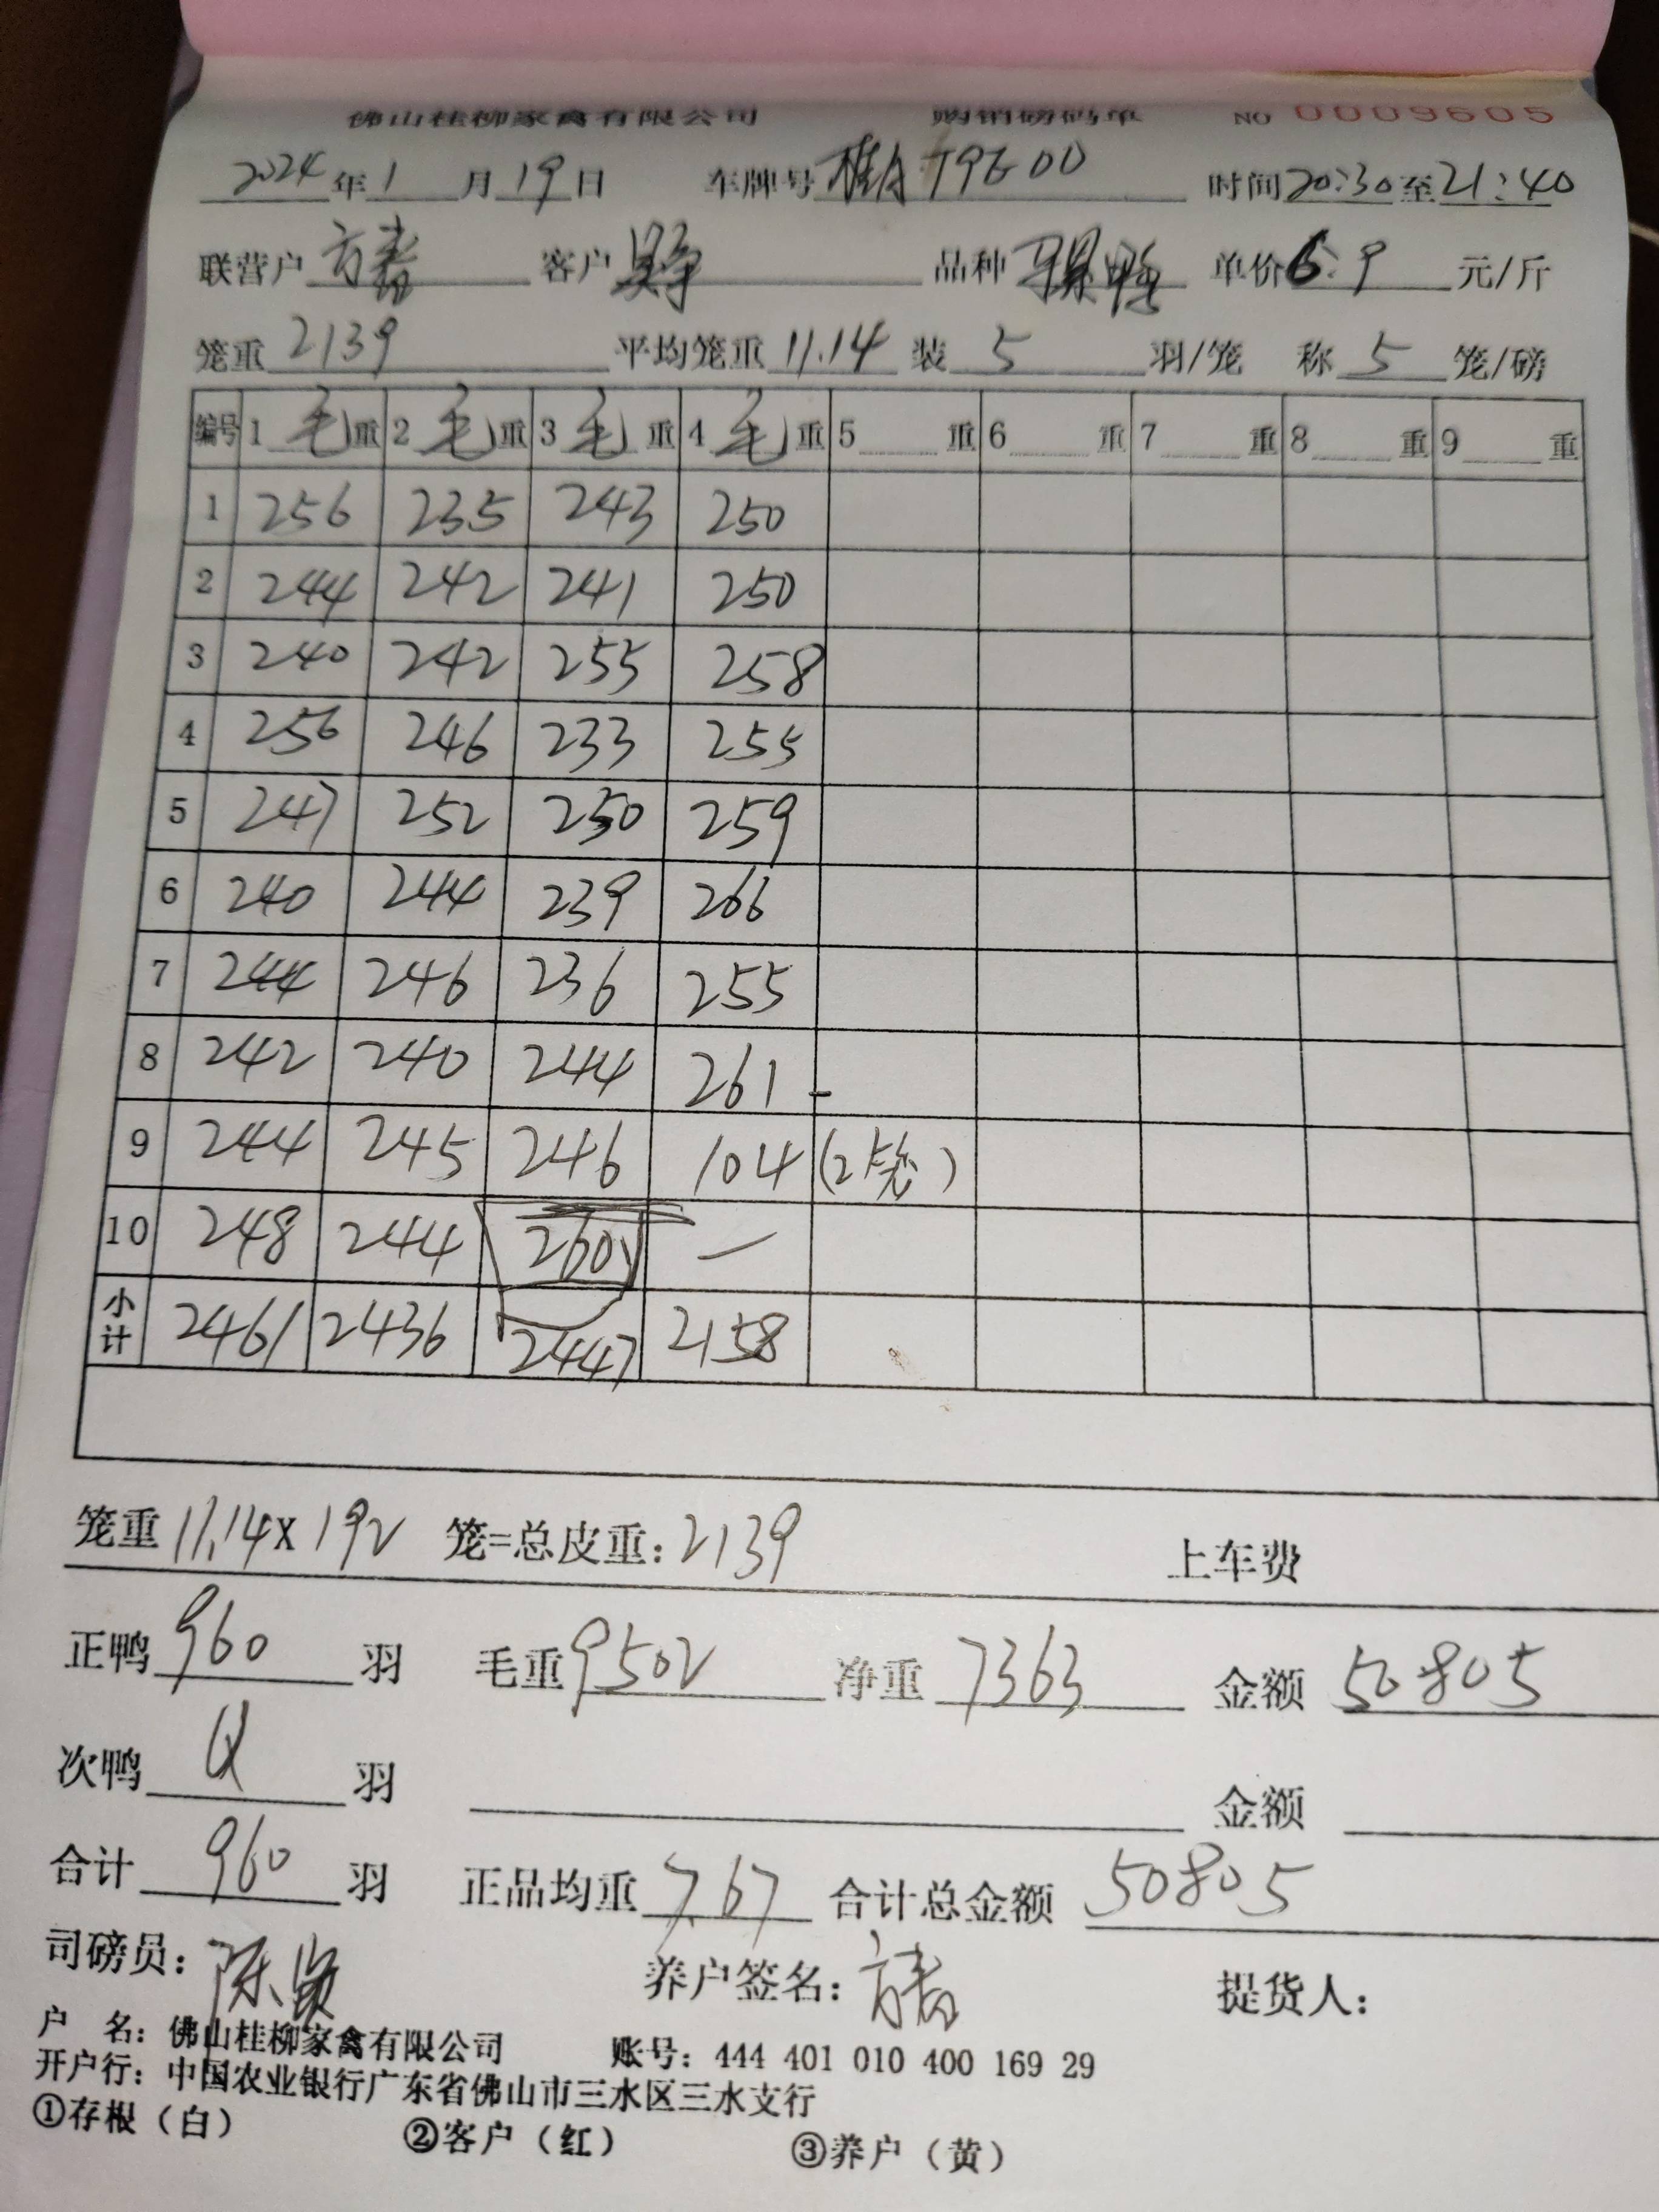 佛山桂柳家禽有限公司 购销磅码单 NO 0009605
2024年1月19日 车牌号 时间20:30至21:40
联营户 客户 品种 单价6.9元/斤
笼重2139 平均笼重11.14 装5羽/笼 称5笼/磅
编号 1毛重 2毛重 3毛重 4毛重 5重 6重 7重 8重 9重
1 256 235 243 250
2 244 242 241 250
3 240 242 255 258
4 256 246 233 255
5 247 252 250 259
6 240 244 239 266
7 244 246 236 255
8 242 240 244 261 -
9 244 245 246 104 (2笼)
10 248 244 260 —
小计 2461 2436 2447 2158
笼重11.14X192 笼=总皮重:2139 上车费
正鸭960羽 毛重9502 净重7363 金额50805
次鸭 羽 金额
合计960羽 正品均重7.67 合计总金额50805
司磅员: 养户签名: 提货人:
户 名: 佛山桂柳家禽有限公司 账号: 444 401 010 400 169 29
开户行: 中国农业银行广东省佛山市三水区三水支行
①存根(白) ②客户(红) ③养户(黄)